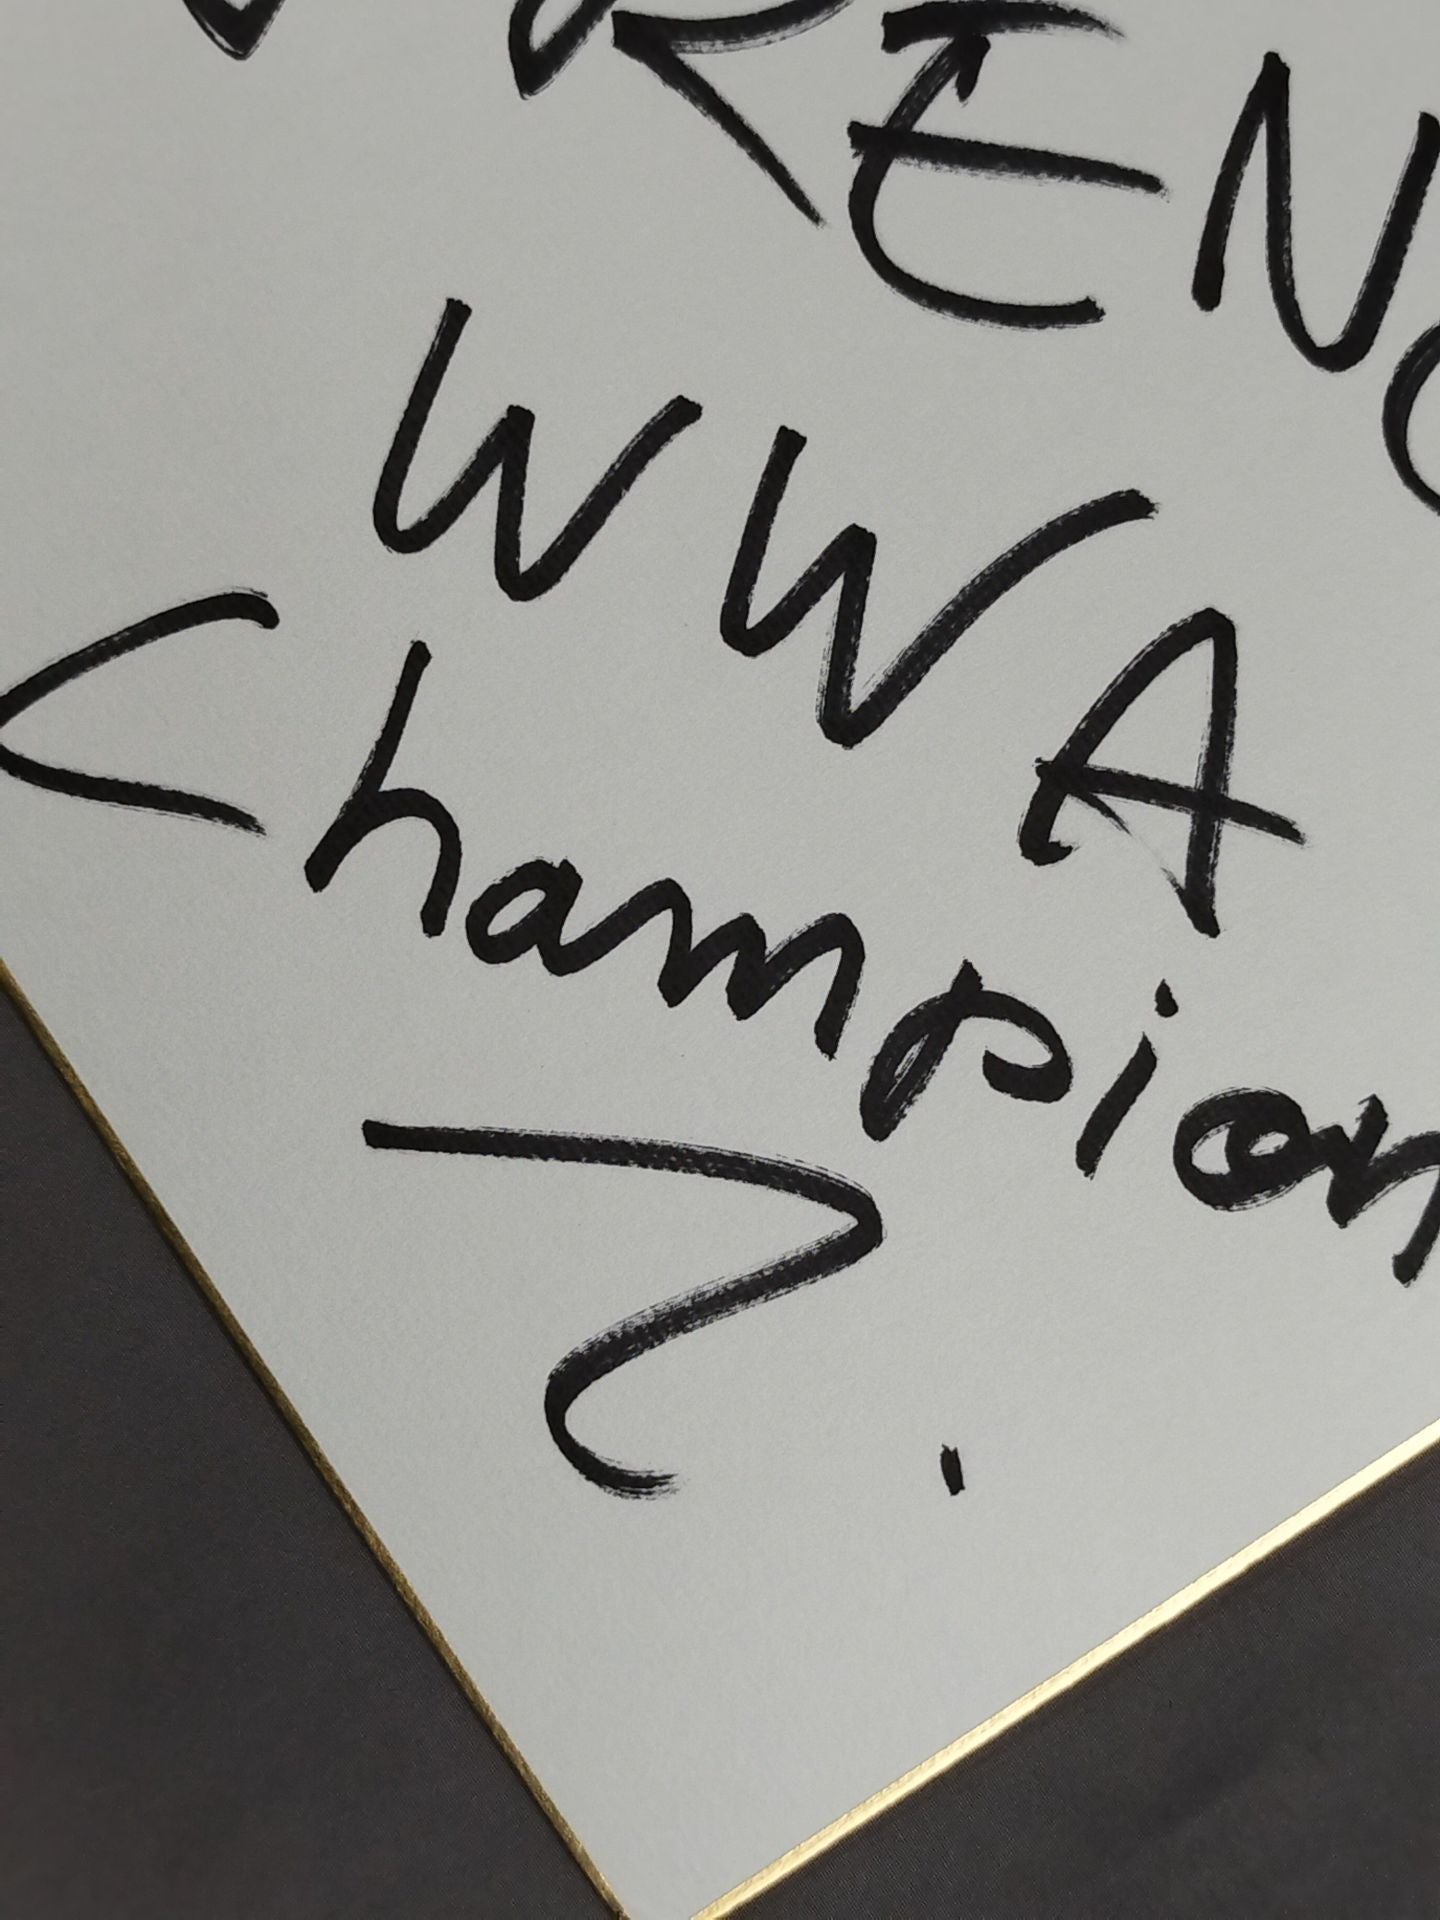 RENC
WWA
Champion